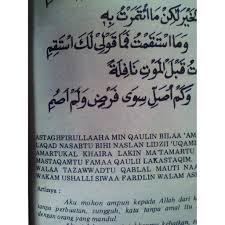 الخير لكن ما ائتمرت به
وما استقمت فما قولي لك استقم
قبل الموت نافلة
ولم أصل سوى فرض ولم أصم
ASTAGHFIRULLAAHA MIN QAULIN BILAA 'AM
LAQAD NASABTU BIHI NASLAN LIDZII 'UQAMI
AMARTUKAL KHAIRA LAKIN MA'TAMARTU
MASTAQAMTU FAMAA QAULII LAKASTAQIM.
WALAA TAZAWWADTU QABLAL MAUTI NAA
WAKAM USHALLI SIWAA FARDLIN WALAM AS
Artinya :
Aku mohon ampun kepada Allah dari
perbuatan, sungguh, kata tanpa amal itu
dengan orang yang mandul.
kebaikan,